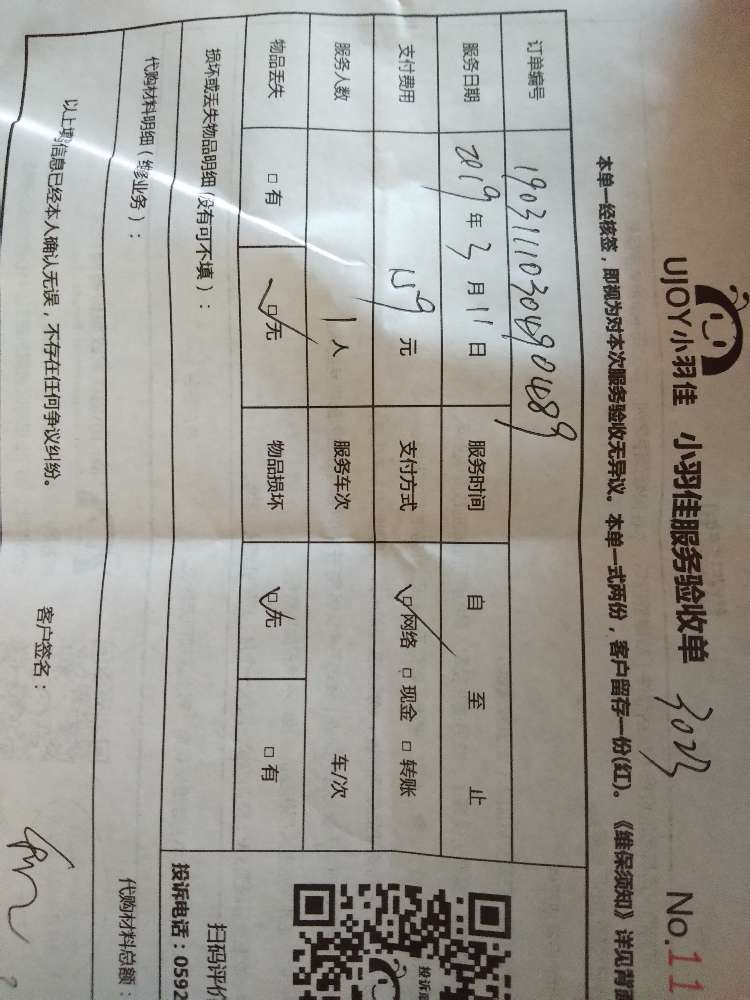 UJOY小羽佳 小羽佳服务验收单 3023 No.11
本单一经核签，即视为对本次服务验收无异议。本单一式两份，客户留存一份(红)。《维保须知》详见背面
订单编号 1903111030490489
服务日期 2019年3月11日 服务时间 自 至 止
支付费用 159元 支付方式 □网络 □现金 □转账
服务人数 1人 服务车次 车/次
物品丢失 □有 □无 物品损坏 □无 □有
投诉
扫码评价
损坏或丢失物品明细(没有可不填)：
投诉电话：0592
代购材料明细( 业务)： 代购材料总额：
以上 信息已经本人确认无误，不存在任何争议纠纷。 客户签名：